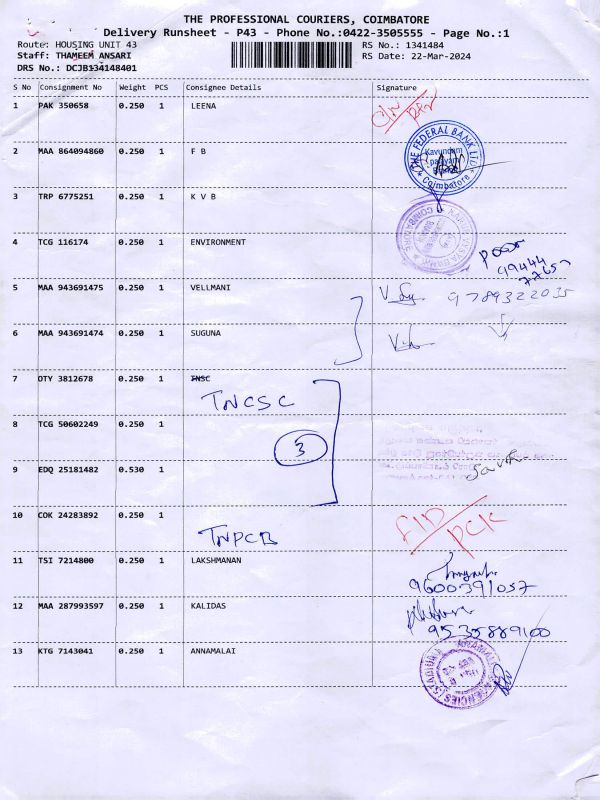 THE PROFESSIONAL COURIERS, COIMBATORE
Delivery Runsheet - P43 - Phone No.:0422-3505555 - Page No.:1
Route: HOUSING UNIT 43 RS No.: 1341484
Staff: THAMEEM ANSARI RS Date: 22-Mar-2024
DRS No.: DCJB134148401
S No Consignment No Weight PCS Consignee Details Signature
1 PAK 350658 0.250 1 LEENA
THE FEDERAL BANK LTD.
Coimbatore
2 MAA 864094860 0.250 1 F B
3 TRP 6775251 0.250 1 K V B
4 TCG 116174 0.250 1 ENVIRONMENT
99444
77657
5 MAA 943691475 0.250 1 VELLMANI 9789322035
6 MAA 943691474 0.250 1 SUGUNA
7 OTY 3812678 0.250 1 TNSC
TNCSC
8 TCG 50602249 0.250 1
3
9 EDQ 25181482 0.530 1
10 COK 24283892 0.250 1
TNPCB
11 TSI 7214800 0.250 1 LAKSHMANAN
9600391057
12 MAA 287993597 0.250 1 KALIDAS
9535889100
13 KTG 7143041 0.250 1 ANNAMALAI